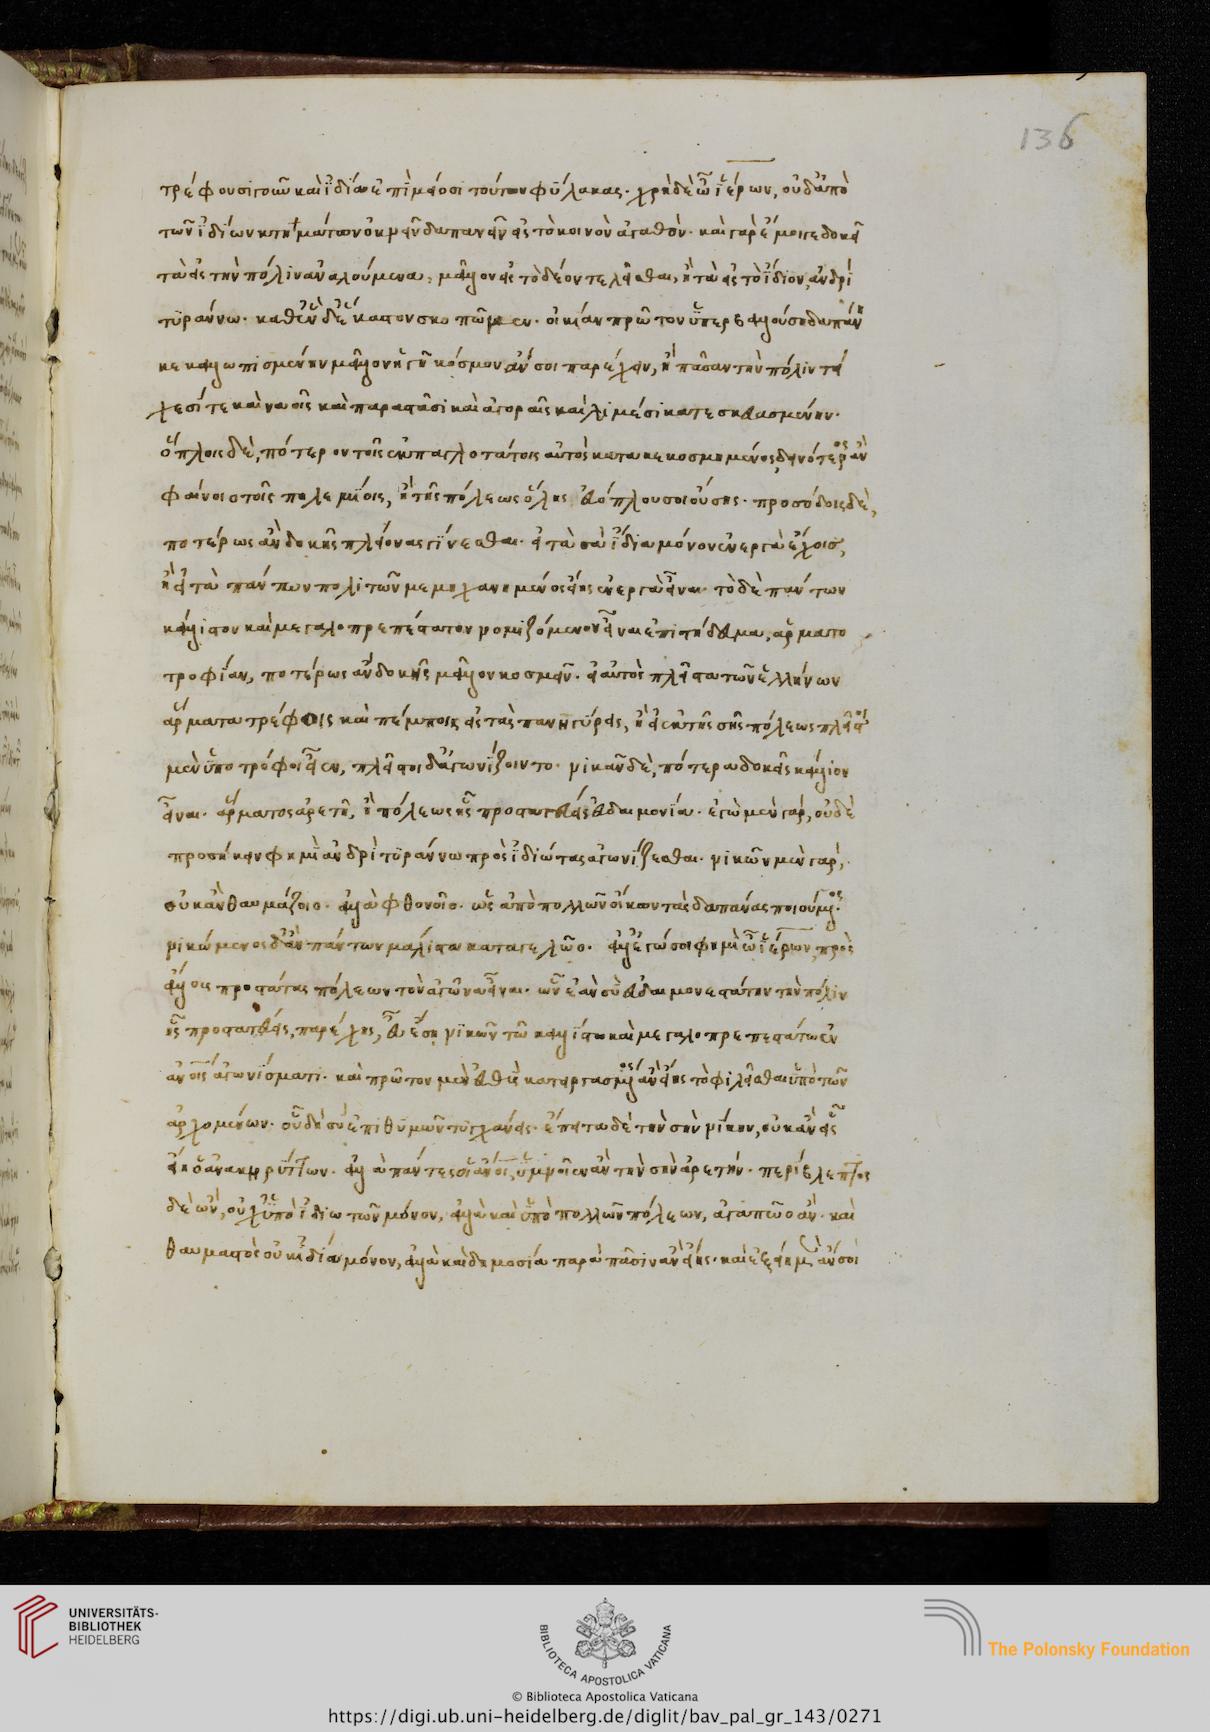 136
τρέφουσι τοῦ καὶ ἰδίαν ἐπὶ μόσι τούτων φύλακας. χρὴ δὲ ὦ ἱέρων, οὐδ' ἀπὸ
τῶν ἰδίων κτημάτων ὀκνεῖν δαπανᾶν εἰς τὸ κοινὸν ἀγαθόν. καὶ γὰρ ἔμοιγε δοκεῖ
τὰ εἰς τὴν πόλιν ἀναλούμενα, μᾶλλον εἰς τὸ δέον τελεῖσθαι, ἢ τὰ εἰς τὸ ἴδιον, ἀνδρὶ
τυράννω. καθὲν δ' ἕκαστον σκοπῶμεν. οἰκίαν πρῶτον ὑπερβαλλούση δαπάνη
κεκαλλωπισμένην μᾶλλον ἡγῆ κόσμον ἄν σοι παρέχειν, ἢ πᾶσαν τὴν πόλιν τεί
χεσί τε καὶ ναοῖς καὶ παραστᾶσι καὶ ἀγοραῖς καὶ λιμέσι κατεσκευασμένην.
ὅπλοις δὲ, πότερον τοῖς ἐκπαγλοτάτοις αὐτὸς κατακεκοσμημένος δεινότερος ἂν
φαίνοιο τοῖς πολεμίοις, ἢ τῆς πόλεως ὅλης εὐόπλου σοι οὔσης. προσόδοις δὲ,
ποτέρως ἂν δοκῆς πλείονας γίνεσθαι. εἰ τὰ σὰ ἴδια μόνον ἐνεργὰ ἔχοις,
ἢ εἰ τὰ πάντων πολιτῶν μεμηχανημένος εἴης ἐνεργὰ εἶναι. τὸ δὲ πάντων
κάλλιστον καὶ μεγαλοπρεπέστατον νομιζόμενον εἶναι ἐπιτήδευμα, ἁρματο
τροφίαν, ποτέρως ἂν δοκῆς μᾶλλον κοσμεῖν. εἰ αὐτὸς πλεῖστα τῶν ἑλλήνων
ἅρματα τρέφοις καὶ πέμποις εἰς τὰς πανηγύρεις, ἢ εἰ ἐκ τῆς σῆς πόλεως πλεῖστοι
μὲν ἱπποτρόφοι εἶεν, πλεῖστοι δ' ἀγωνίζοιντο. νικᾶν δὲ, πότερα δοκεῖς κάλλιον
εἶναι. ἅρματος ἀρετῆ, ἢ πόλεως ἧς προστατεύεις εὐδαιμονία. ἐγὼ μὲν γὰρ, οὐδὲ
προσήκειν φημὶ ἀνδρὶ τυράννω πρὸς ἰδιώτας ἀγωνίζεσθαι. νικῶν μὲν γὰρ,
οὐκ ἂν θαυμάζοιο. ἀλλὰ φθονοῖο. ὡς ἀπὸ πολλῶν οἴκων τὰς δαπάνας ποιούμενος.
νικώμενος δ' ἂν πάντων μάλιστα καταγελῶο. ἀλλ' ἐγώ σοι φημὶ ὦ ἱέρων, πρὸς
ἄλλους προστάτας πόλεων τὸν ἀγῶνα εἶναι. ὧν ἐὰν σὺ εὐδαιμονεστάτην τὴν πόλιν
ἧς προστατεύεις, παρέχης, εὖ ἔση νικῶν τῶ καλλίστω καὶ μεγαλοπρεπεστάτω ἐν
ἀνοις ἀγωνίσματι. καὶ πρῶτον μὲν εὐθὺς κατειργασμένος ἂν εἴης τὸ φιλεῖσθαι ὑπὸ τῶν
ἀρχομένων. οὗ δὴ σὺ ἐπιθυμῶν τυγχάνεις. ἔπειτα δὲ τὴν σὴν νίκην, οὐκ ἂν εἷς
εἴη ὁ ἀνακηρύττων. ἀλλὰ πάντες οἱ ἀνοι, ὑμνοῖεν ἂν τὴν σὴν ἀρετήν. περίβλεπτος
δὲ ὢν, οὐχ ὑπὸ ἰδιωτῶν μόνον, ἀλλὰ καὶ ὑπὸ πολλῶν πόλεων, ἀγαπῶο ἄν. καὶ
θαυμαστὸς οὐκ ἰδία μόνον, ἀλλὰ καὶ δημοσία παρὰ πᾶσιν ἂν εἴης. καὶ ἐξείη μὲν ἄν σοι
UNIVERSITÄTS-
BIBLIOTHEK
HEIDELBERG
BIBLIOTECA APOSTOLICA VATICANA
© Biblioteca Apostolica Vaticana
The Polonsky Foundation
https://digi.ub.uni-heidelberg.de/diglit/bav_pal_gr_143/0271